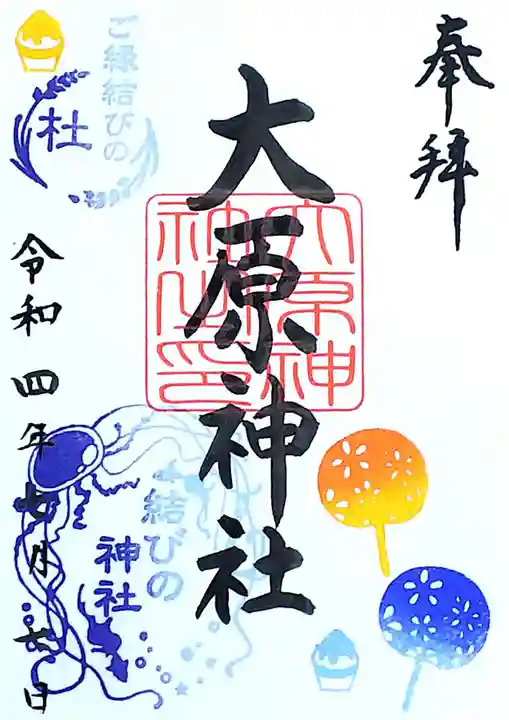 奉拜
大原神社
大原神社印
ご縁結びの
杜
令和四年七月六日
結びの
神社